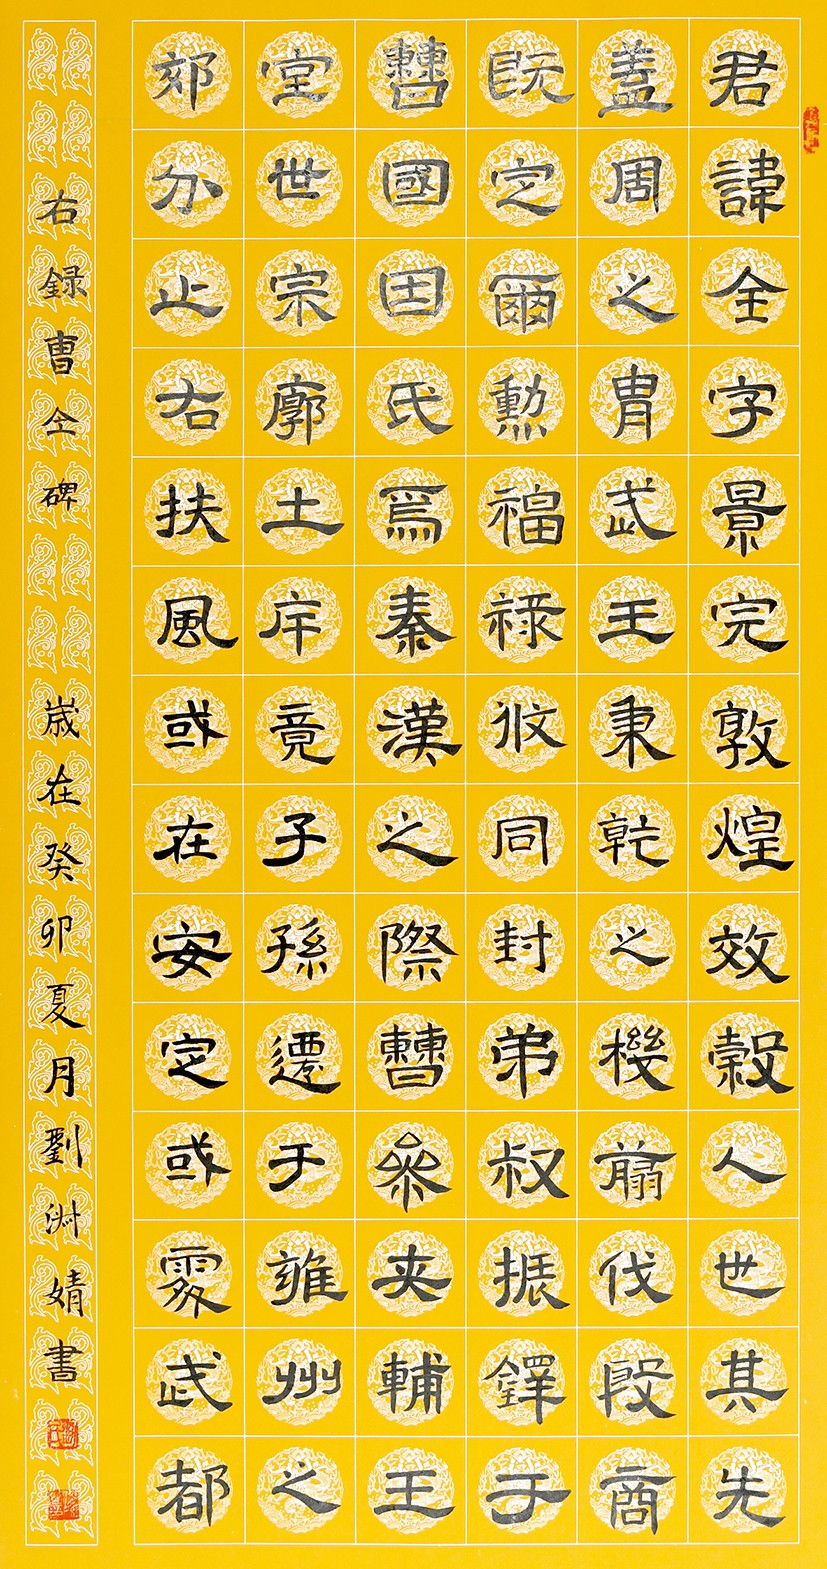 君諱全字景完敦煌效穀人也其先
蓋周之胄武王秉乾之機翦伐殷商
既定爾勲福祿攸同封弟叔振鐸于
曹國因氏焉秦漢之際曹參夾輔王
室世宗廓土斥竟子孫遷于雍州之
郊分止右扶風或在安定或處武都
右録曹全碑 歲在癸卯夏月劉婧書